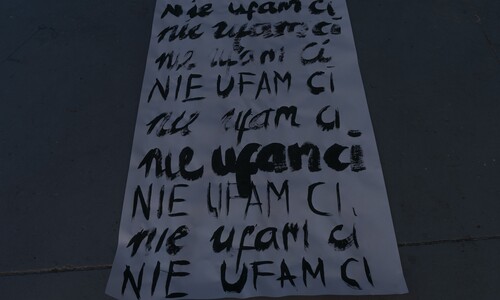 nie ufam ci
nie ufam ci
nie ufam ci
NIE UFAM CI
nie ufam ci
nie ufam ci
NIE UFAM CI.
nie ufam ci
NIE UFAM CI